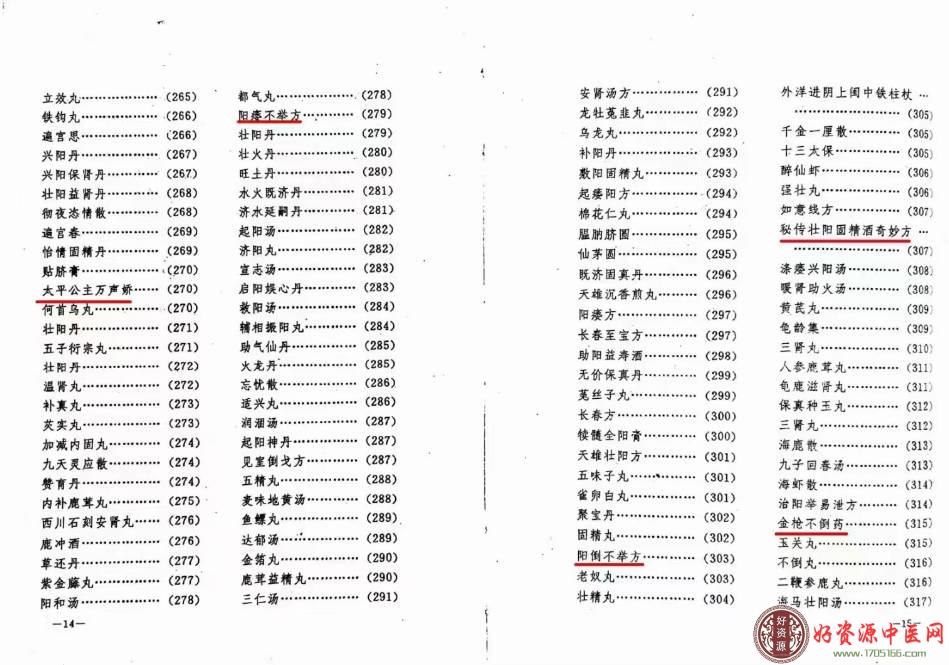 立效丸………………(265)
铁钩丸………………(266)
遍宫思………………(266)
兴阳丹………………(267)
兴阳保肾丹…………(267)
壮阳益肾丹…………(268)
彻夜恣情散…………(268)
遍宫春………………(269)
怡情固精丹…………(269)
贴脐膏………………(270)
太平公主万声娇……(270)
何首乌丸……………(270)
壮阳丹………………(271)
五子衍宗丸…………(271)
壮阳丹………………(272)
温肾丸………………(272)
补真丸………………(273)
芡实丸………………(273)
加减内固丸…………(274)
九天灵应散…………(274)
赞育丹………………(274)
内补鹿茸丸…………(275)
西川石刻安肾丸……(276)
鹿冲酒………………(276)
草还丹………………(277)
紫金藤丸……………(277)
阳和汤………………(278)
—14—
都气丸………………(278)
阳痿不举方…………(279)
壮阳丹………………(279)
壮火丹………………(280)
旺土丹………………(280)
水火既济丹…………(281)
济水延嗣丹…………(281)
起阳汤………………(282)
济阳丸………………(282)
宣志汤………………(283)
启阳娱心丹…………(283)
救阳汤………………(284)
辅相振阳丸…………(284)
助气仙丹……………(285)
火龙丹………………(285)
忘忧散………………(286)
适兴丸………………(286)
润涸汤………………(287)
起阳神丹……………(287)
见室倒戈方…………(287)
五精丸………………(288)
麦味地黄汤…………(288)
鱼螵丸………………(289)
达郁汤………………(289)
金箔丸………………(290)
鹿茸益精丸…………(290)
三仁汤………………(291)
安肾汤方……………(291)
龙牡菟韭丸…………(292)
乌龙丸………………(292)
补阳丹………………(293)
敷阳固精丸…………(293)
起痿阳方……………(294)
棉花仁丸……………(294)
腽肭脐圆……………(295)
仙茅圆………………(295)
既济固真丹…………(296)
天雄沉香煎丸………(296)
阳痿方………………(297)
长春至宝方…………(297)
助阳益寿酒…………(298)
无价保真丹…………(299)
菟丝子丸……………(299)
长春方………………(300)
犊髓全阳膏…………(300)
天雄壮阳方…………(301)
五味子丸……………(301)
雀卵白丸……………(301)
聚宝丹………………(302)
固精丸………………(302)
阳倒不举方…………(303)
老奴丸………………(303)
壮精丸………………(304)
外洋进阴上闽中铁柱杖 …
………………………(305)
千金一厘散…………(305)
十三太保……………(305)
醉仙虾………………(306)
强壮丸………………(306)
如意线方……………(307)
秘传壮阳固精酒奇妙方 …
………………………(307)
涤痿兴阳汤…………(308)
暖肾助火汤…………(308)
黄芪丸………………(309)
龟龄集………………(309)
三肾丸………………(310)
人参鹿茸丸…………(311)
龟鹿滋肾丸…………(311)
保真种玉丸…………(312)
三肾丸………………(312)
海鹿散………………(313)
九子回春汤…………(313)
海虾散………………(314)
治阳举易泄方………(314)
金枪不倒药…………(315)
玉关丸………………(315)
不倒丸………………(316)
二鞭参鹿丸…………(316)
海马壮阳汤…………(317)
—15—
好资源
好资源中医网
www.1705166.com